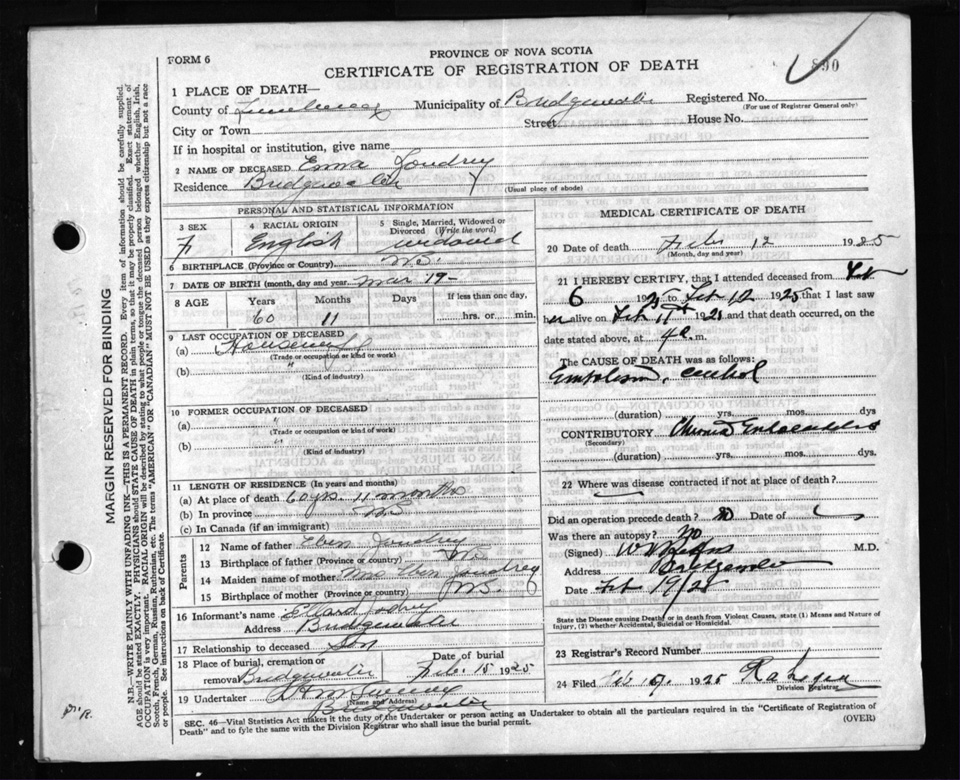 PROVINCE OF NOVA SCOTIA
FORM 6
CERTIFICATE OF REGISTRATION OF DEATH
1 PLACE OF DEATH—
County of Lunenburg Municipality of Bridgewater Registered No.
(For use of Registrar General only)
City or Town Street House No.
If in hospital or institution, give name
2 NAME OF DECEASED Emma Joudrey
Residence Bridgewater
(Usual place of abode)
PERSONAL AND STATISTICAL INFORMATION
3 SEX 4 RACIAL ORIGIN 5 Single, Married, Widowed or Divorced (Write the word)
F English widowed
6 BIRTHPLACE (Province or Country) N.S.
7 DATE OF BIRTH (month, day and year) Mar 19 -
8 AGE Years Months Days If less than one day,
60 11 hrs. or min.
9 LAST OCCUPATION OF DECEASED
(a) Housewife
(Trade or occupation or kind of work)
(b) "
(Kind of industry)
10 FORMER OCCUPATION OF DECEASED
(a) "
(Trade or occupation or kind of work)
(b) "
(Kind of industry)
11 LENGTH OF RESIDENCE (In years and months)
(a) At place of death 60 yrs. 11 months
(b) In province
(c) In Canada (if an immigrant)
Parents
12 Name of father Eben Joudrey
13 Birthplace of father (Province or Country) N.S.
14 Maiden name of mother Mrs Eben Joudrey
15 Birthplace of mother (Province or Country) N.S.
16 Informant's name Joudrey
Address Bridgewater
17 Relationship to deceased Son
18 Place of burial, cremation or removal Date of burial
Bridgewater Feb. 15 1925
19 Undertaker
(Name and Address)
Bridgewater
MEDICAL CERTIFICATE OF DEATH
20 Date of death Feb 12 1925
(Month, day and year)
21 I HEREBY CERTIFY, that I attended deceased from Feb
6 1925 to Feb 12 1925 that I last saw
her alive on Feb 11th 1925 and that death occurred, on
date stated above, at 4 a. m.
The CAUSE OF DEATH was as follows:
Embolism,
(duration) yrs. mos. dys
CONTRIBUTORY Chronic
(Secondary)
(duration) yrs. mos. dys.
22 Where was disease contracted if not at place of death?
Did an operation precede death? No Date of
Was there an autopsy? No
(Signed) M.D.
Address Bridgewater
Date Feb 19/25
State the Disease causing Death; or in death from Violent Causes, state (1) Means and Nature of Injury, (2) whether Accidental, Suicidal or Homicidal.
23 Registrar's Record Number
24 Filed 1925
Division Registrar
SEC. 46—Vital Statistics Act makes it the duty of the Undertaker or person acting as Undertaker to obtain all the particulars required in the "Certificate of Registration of
Death" and to fyle the same with the Division Registrar who shall issue the burial permit.
(OVER)
MARGIN RESERVED FOR BINDING
N.B.—WRITE PLAINLY WITH UNFADING INK—THIS IS A PERMANENT RECORD. Every item of information should be carefully supplied.
AGE should be stated EXACTLY. PHYSICIANS should STATE CAUSE OF DEATH in plain terms, so that it may be properly classified. Exact statement of
OCCUPATION is very important. RACIAL ORIGIN will be described by stating to what people or tongue the deceased person belonged whether English, Irish,
Scotch, French, German, Russian, Ruthenian, etc. The terms "AMERICAN" OR "CANADIAN" MUST NOT BE USED as they express citizenship but not a race
or people. See instructions on back of Certificate.